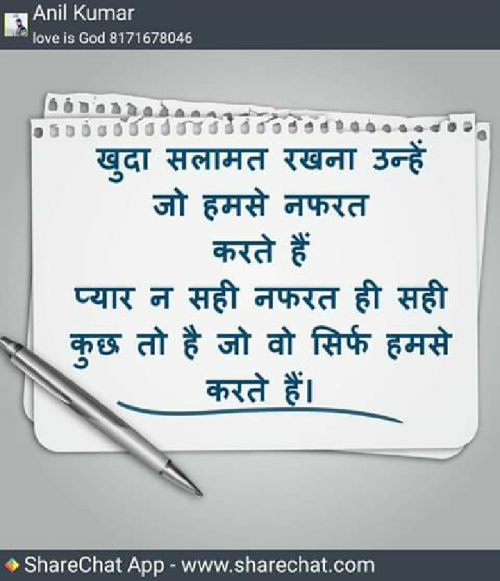 Anil Kumar
love is God 8171678046
खुदा सलामत रखना उन्हें
जो हमसे नफरत
करते हैं
प्यार न सही नफरत ही सही
कुछ तो है जो वो सिर्फ हमसे
करते हैं।
ShareChat App - www.sharechat.com